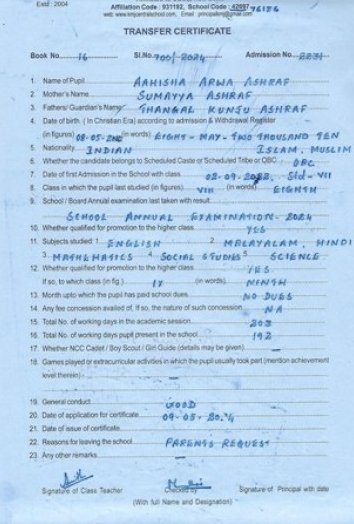 Estd : 2004
Affiliation Code : 931192, School Code : 42697 76126
TRANSFER CERTIFICATE
Book No. 16 Sl.No. 700/2024 Admission No. 2231
1. Name of Pupil AAHISHA ARWA ASHRAF
2. Mother's Name SUMAYYA ASHRAF
3. Fathers/ Guardian's Name THANGAL KUNJU ASHRAF
4. Date of birth. ( In Christian Era) according to admission & Withdrawal Register
(in figures) 08-05- (in words) EIGHT - MAY - TWO THOUSAND TEN
5. Nationality INDIAN ISLAM, MUSLIM
6. Whether the candidate belongs to Scheduled Caste or Scheduled Tribe or OBC OBC
7. Date of first Admission in the School with class 02-09-2022, Std - VII
8. Class in which the pupil last studied (in figures) VIII (in words) EIGHTH
9. School / Board Annual examination last taken with result
SCHOOL ANNUAL EXAMINATION - 2024
10. Whether qualified for promotion to the higher class YES
11. Subjects studied : 1 ENGLISH 2. MALAYALAM, HINDI
3. MATHEMATICS 4. SOCIAL STUDIES 5. SCIENCE
12. Whether qualified for promotion to the higher class YES
If so, to which class (in fig.) IX (in words) NINTH
13. Month upto which the pupil has paid school dues NO DUES
14. Any fee concession availed of, If so, the nature of such concession NA
15. Total No. of working days in the academic session 203
16. Total No. of working days pupil present in the school 192
17. Whether NCC Cadet / Boy Scout / Girl Guide (details may be given) —
18. Games played or extracurricular activities in which the pupil usually took part (mention achievement
level therein) —
19. General conduct GOOD
20. Date of application for certificate 09-05-2024
21. Date of issue of certificate
22. Reasons for leaving the school PARENTS REQUEST
23. Any other remarks —
Signature of Class Teacher Checked by Signature of Principal with date
(With full Name and Designation)